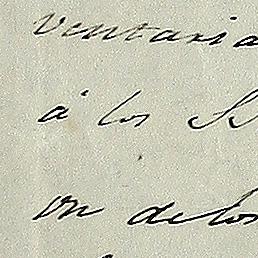 ventaria
á los S
on de los